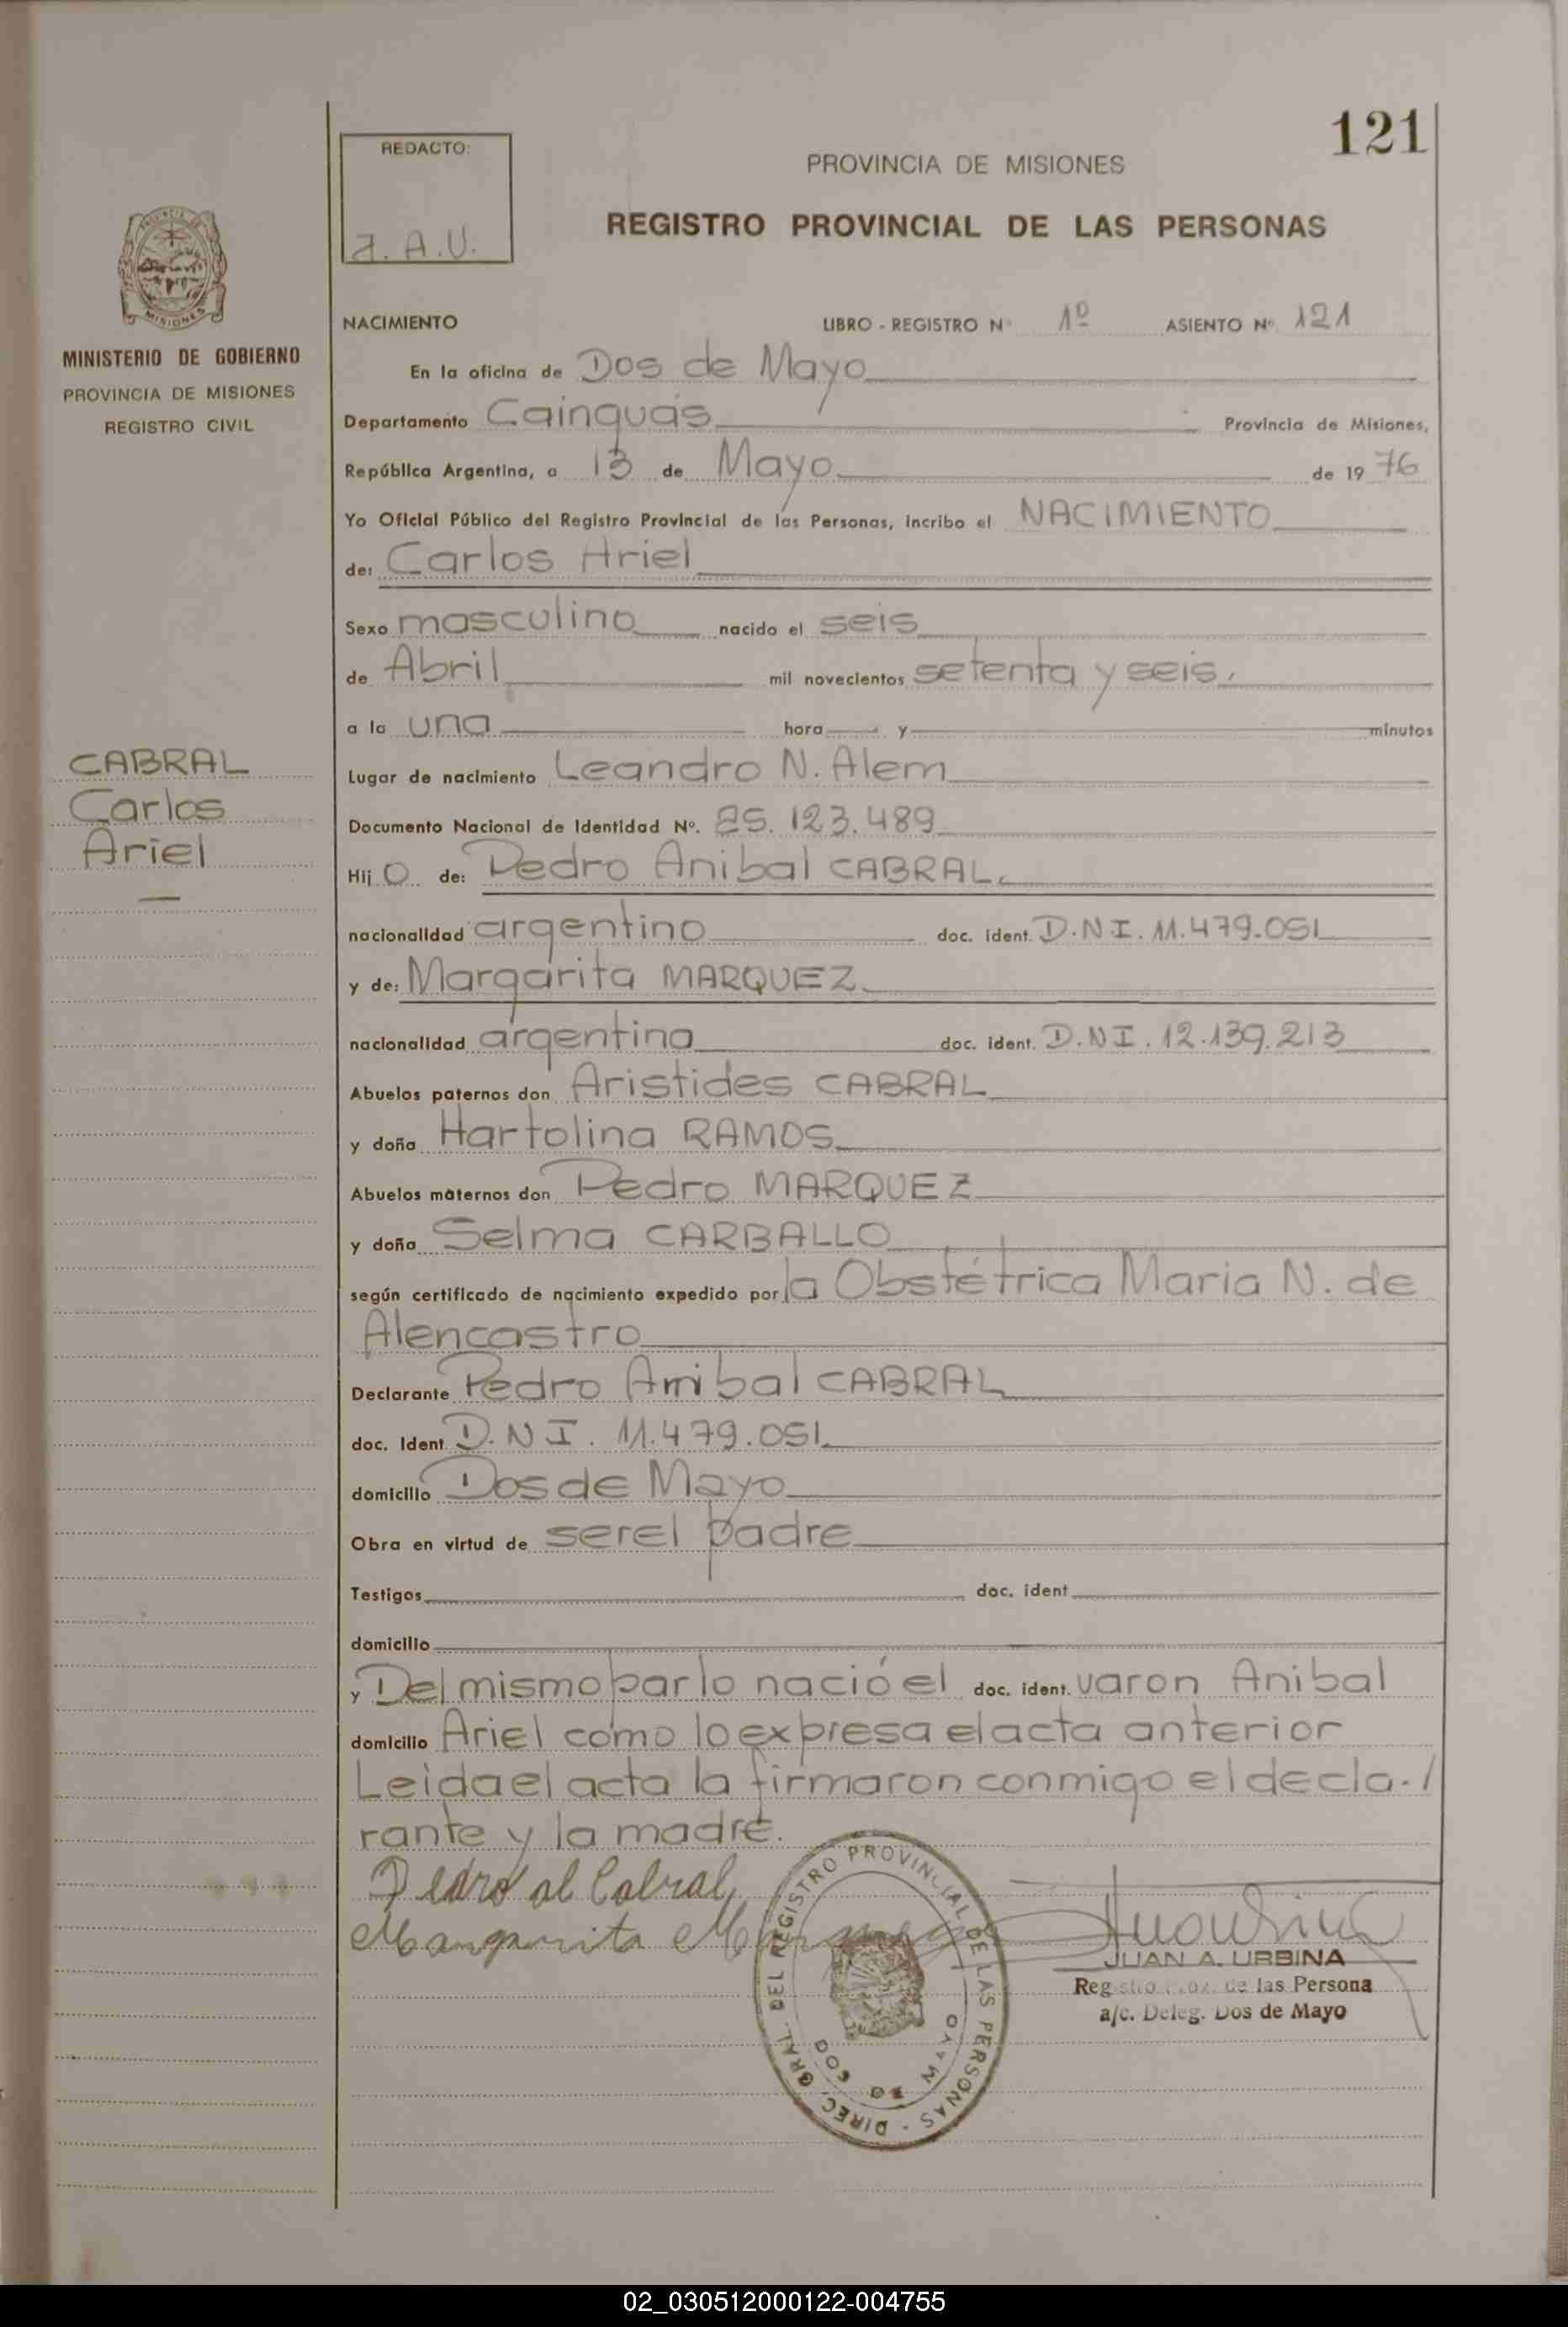 121
REDACTO:
J. A. U.
PROVINCIA DE MISIONES
REGISTRO PROVINCIAL DE LAS PERSONAS
MISIONES
MINISTERIO DE GOBIERNO
PROVINCIA DE MISIONES
REGISTRO CIVIL
CABRAL
Carlos
Ariel
NACIMIENTO LIBRO - REGISTRO Nº 1º ASIENTO Nº 121
En la oficina de Dos de Mayo
Departamento Cainguás Provincia de Misiones,
República Argentina, a 13 de Mayo de 1976
Yo Oficial Público del Registro Provincial de las Personas, incribo el NACIMIENTO
de: Carlos Ariel
Sexo masculino nacido el seis
de Abril mil novecientos setenta y seis.
a la una hora y minutos
Lugar de nacimiento Leandro N. Alem
Documento Nacional de Identidad Nº. 25.123.489
Hijo de: Pedro Anibal CABRAL.
nacionalidad argentino doc. ident. D.N.I. 11.479.051
y de: Margarita MARQUEZ
nacionalidad argentina doc. ident. D.N.I. 12.139.213
Abuelos paternos don Aristides CABRAL
y doña Hartolina RAMOS
Abuelos maternos don Pedro MARQUEZ
y doña Selma CARBALLO
según certificado de nacimiento expedido por la Obstétrica Maria N. de
Alencastro
Declarante Pedro Anibal CABRAL
doc. Ident. D.N.I. 11.479.051
domicilio Dos de Mayo
Obra en virtud de ser el padre
Testigos doc. ident
domicilio
y Del mismo parto nació el doc. ident. varon Anibal
domicilio Ariel como lo expresa el acta anterior
Leida el acta la firmaron conmigo el decla-/
rante y la madre.
Pedro al Cabral
Margarita Marquez
DIREC. GRAL. DEL REGISTRO PROVINCIAL DE LAS PERSONAS -
DOS DE MAYO
JUAN A. URBINA
Registro Prov. de las Persona
a/c. Deleg. Dos de Mayo
02_030512000122-004755